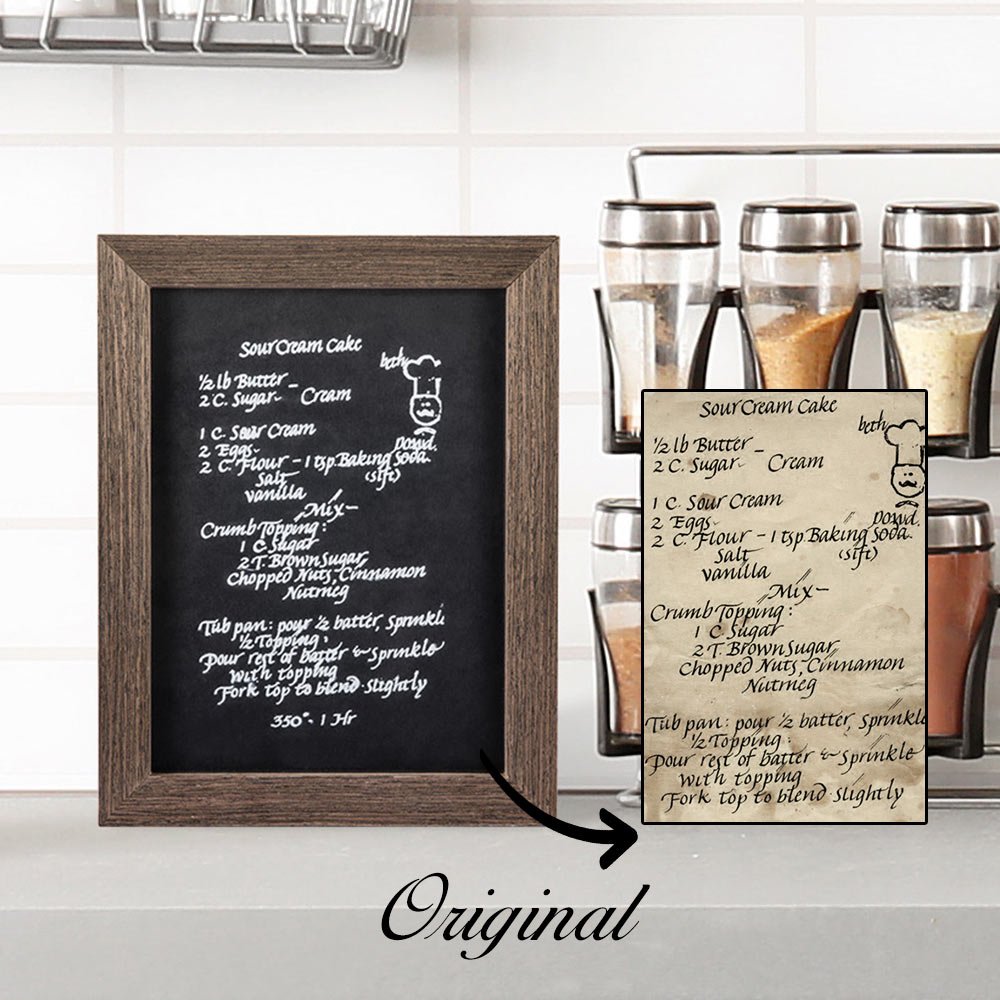 Sour Cream Cake
beth
½ lb Butter -
2 C. Sugar- Cream
1 C. Sour Cream
2 Eggs- Dowd.
2 C. Flour - 1 tsp Baking Soda.
Salt (sift)
vanilla
Mix-
Crumb Topping:
1 C. Sugar
2 T. Brown Sugar,
Chopped Nuts, Cinnamon
Nutmeg
Tub pan: pour ½ batter, Sprinkl
½ Topping;
Pour rest of batter & Sprinkle
with topping
Fork top to blend slightly
350° - 1 Hr
Sour Cream Cake
beth
½ lb Butter -
2 C. Sugar- Cream
1 C. Sour Cream
2 Eggs- Dowd.
2 C. Flour - 1 tsp Baking Soda.
Salt (sift)
vanilla
Mix-
Crumb Topping:
1 C. Sugar
2 T. Brown Sugar,
Chopped Nuts, Cinnamon
Nutmeg
Tub pan: pour ½ batter, Sprinkle
½ Topping;
Pour rest of batter & Sprinkle
with topping
Fork top to blend slightly
Original